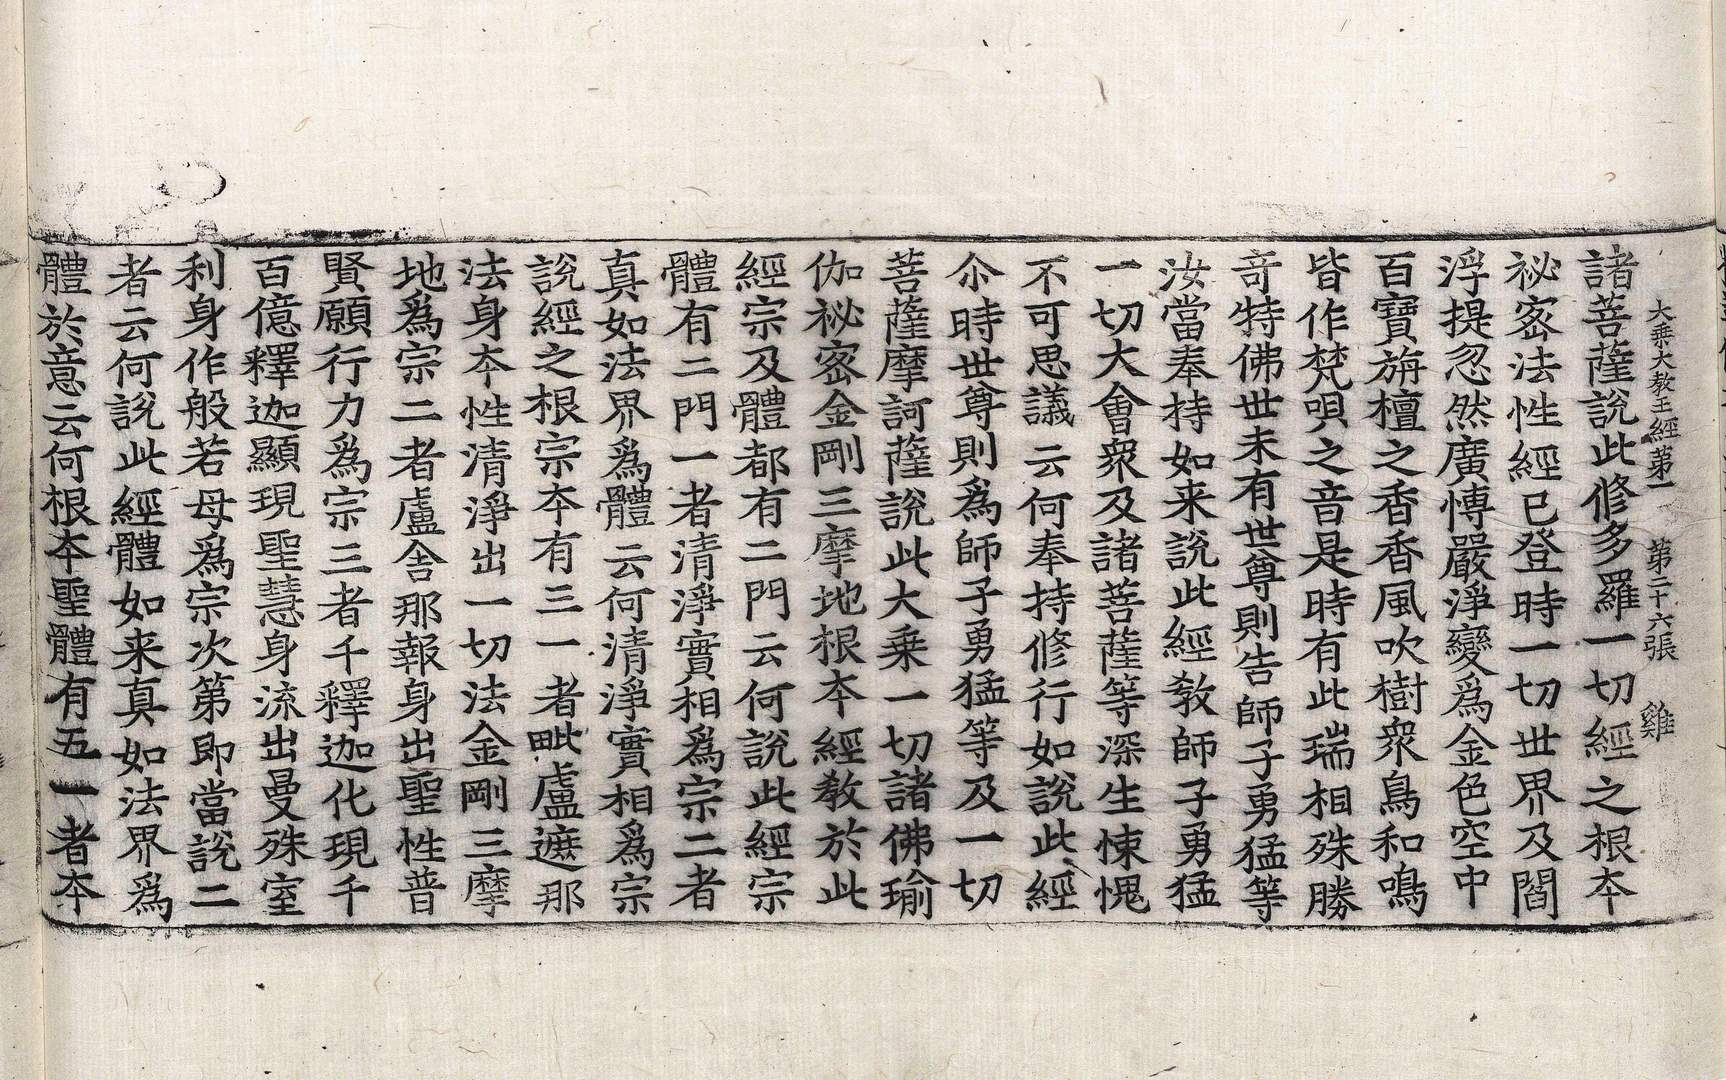 大乘大教王經第一　第二十六張　雞
諸菩薩說此修多羅一切經之根夲
祕密法性經已登時一切世界及閻
浮提忽然廣愽嚴淨變爲金色空中
百寶旃檀之香香風吹樹衆鳥和鳴
皆作梵唄之音是時有此瑞相殊勝
竒特佛世未有世尊則告師子勇猛等
汝當奉持如来說此經教師子勇猛
一切大會衆及諸菩薩等深生悚愧
不可思議云何奉持修行如說此經
尒時世尊則爲師子勇猛等及一切
菩薩摩訶薩說此大乘一切諸佛瑜
伽祕密金剛三摩地根夲經教於此
經宗及體都有二門云何說此經宗
體有二門一者清淨實相爲宗二者
真如法界爲體云何清淨實相爲宗
說經之根宗夲有三一者毗盧遮那
法身夲性清淨出一切法金剛三摩
地爲宗二者盧舍那報身出聖性普
賢願行力爲宗三者千釋迦化現千
百億釋迦顯現聖慧身流出曼殊室
利身作般若母爲宗次第即當說二
者云何說此經體如来真如法界爲
體於意云何根夲聖體有五一者夲